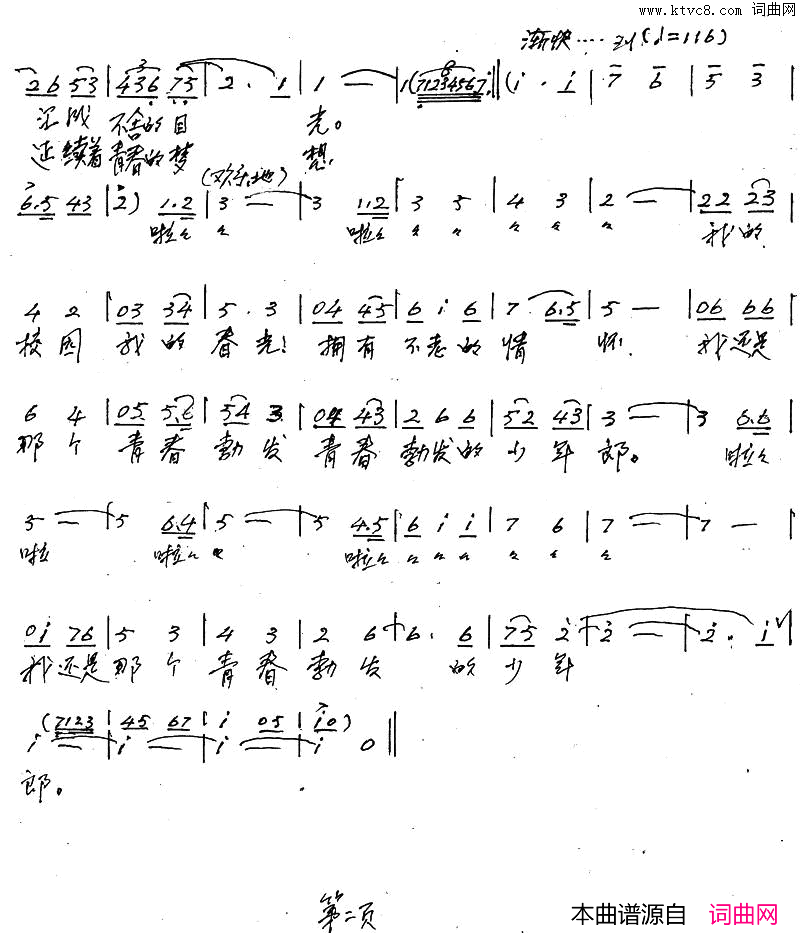 www.ktvc8.com 词曲网
渐快····到(♩=116)
2 6 5 3 | 4 3 6 7 5 | 2 · 1 | 1 — | 1 (7 1 2 3 4 5 6 7 | (i · i | 7 6 | 5 3 |
汇成 不舍的目 光。
延续着青春的梦 想.
(欢乐地)
6.5 4 3 | 2) 1.2 | 3 — | 3 1.2 | 3 5 | 4 3 | 2 — | 2 2 2 3 |
啦々 々 啦々 々 々 々 々 々 我的
4 2 | 0 3 3 4 | 5 · 3 | 0 4 4 5 | 6 i 6 | 7 · 6.5 | 5 — | 0 6 6 6 |
校园 我的 春光! 拥有 不老的情 怀. 我还是
6 4 | 0 5 5 6 | 5 4 3 | 0 4 4 3 | 2 6 6 | 5 2 4 3 | 3 — | 3 6.6 |
那个 青春 勃发 青春 勃发的 少年 郎。 啦々
5 — | 5 6.4 | 5 — | 5 4.5 | 6 i i | 7 6 | 7 — | 7 — |
啦 啦々 々 啦々 々 々 々 々 々 々
0 i 7 6 | 5 3 | 4 3 | 2 6 | 6 · 6 | 7 5 2 | 2 — | 2 · i |
我还是那个 青春 勃发 的少年
(7 1 2 3 | 4 5 6 7 | i 0 5 | i 0)
i — | i — | i — | i 0 ‖
郎。
第二页
本曲谱源自 词曲网